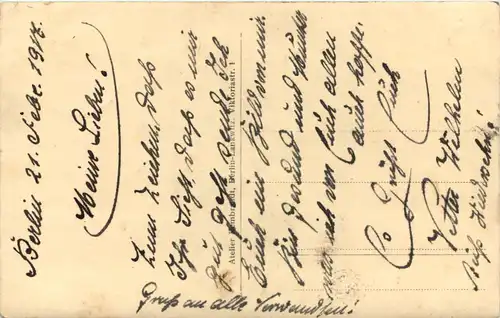 Berlin 21. Febr. 1917.
Meine Lieben!
Zum Zeichen, daß
Ihr Seht daß es mir
gut geht sende Ich
Euch ein Bild von mir.
Bin gesund und munter
was ich von Euch allen
auch hoffe.
Es Grüßt Euch
Vetter Wilhelm
Gruß an alle Verwandten!
Atelier Berlin Viktoriastr. 1